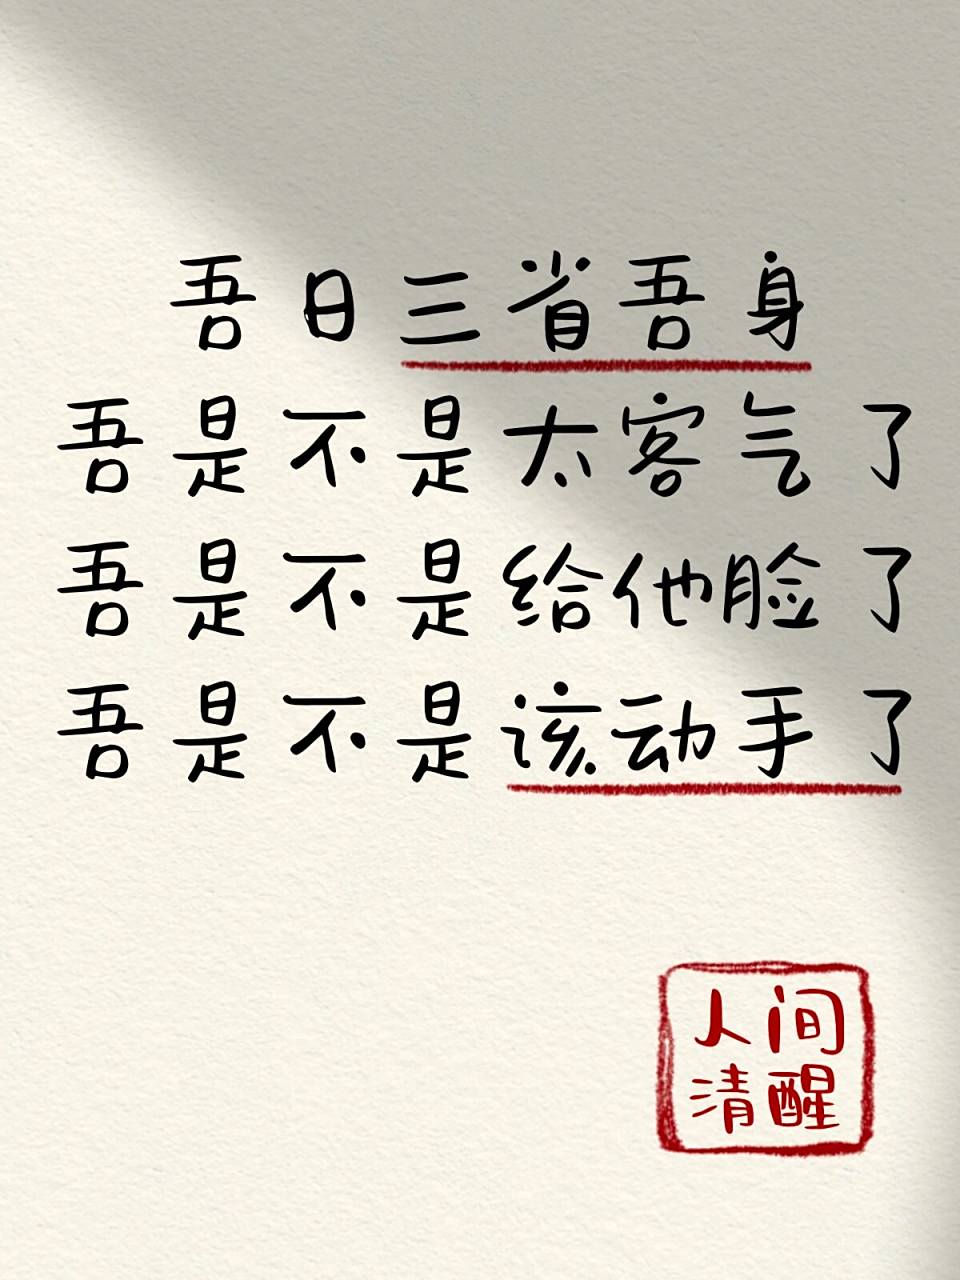 吾日三省吾身
吾是不是太客气了
吾是不是给他脸了
吾是不是该动手了
人间
清醒